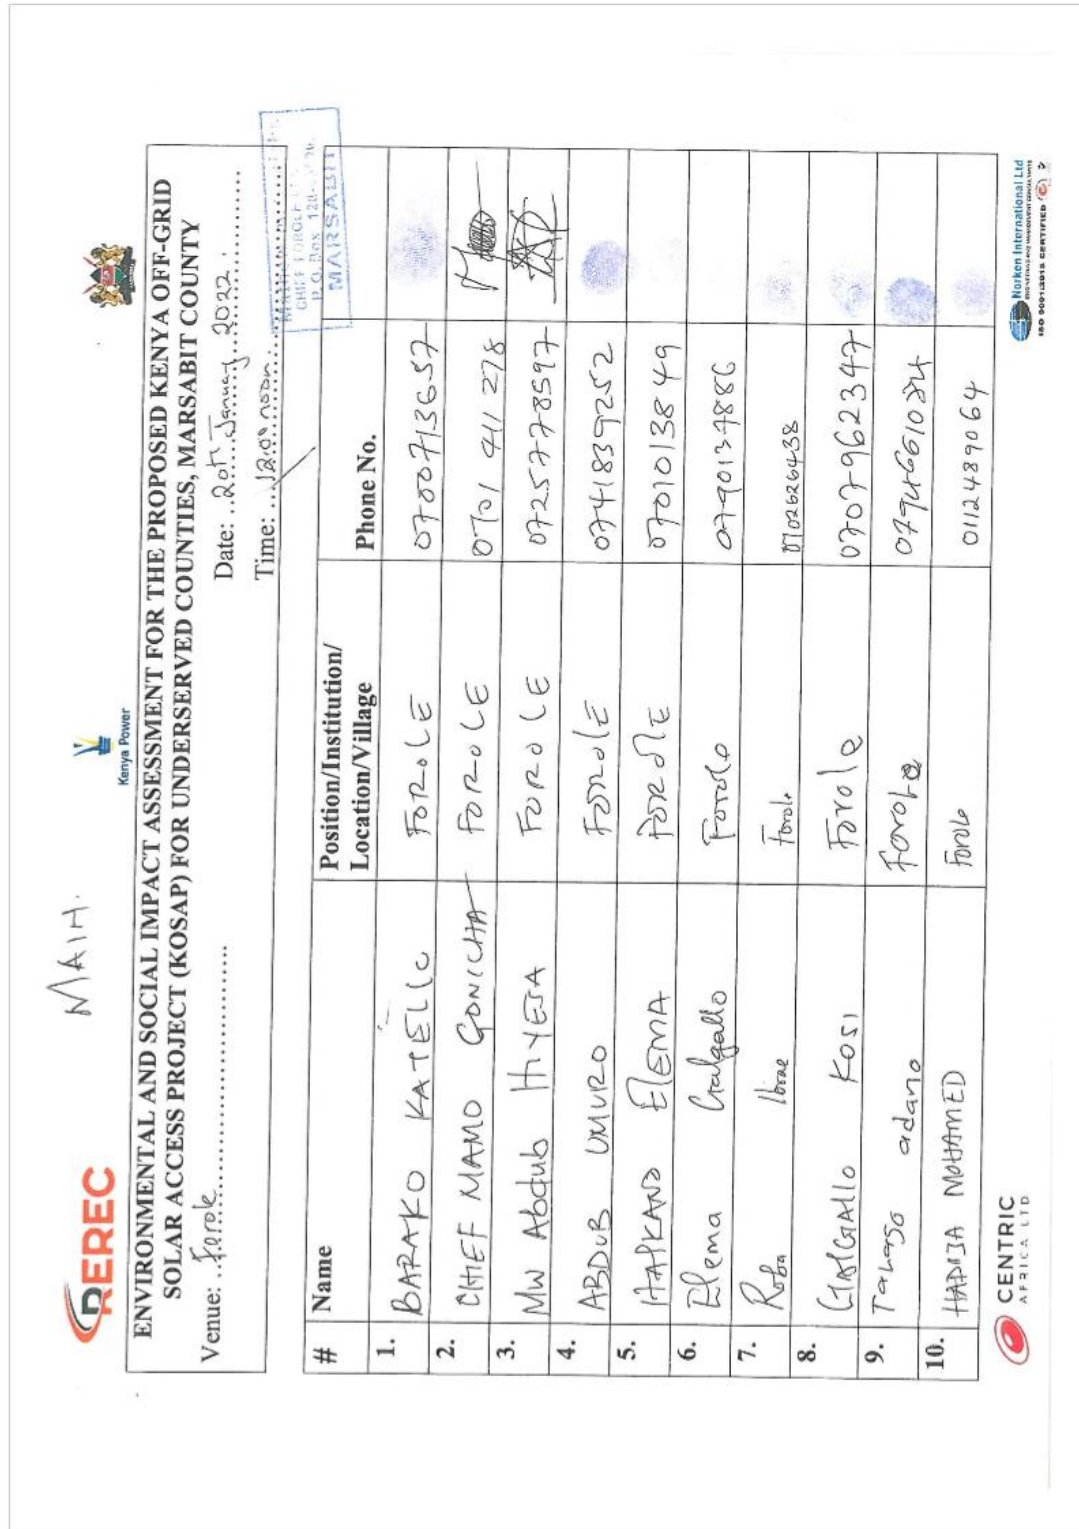 MAIN.
REREC
Kenya Power
ENVIRONMENTAL AND SOCIAL IMPACT ASSESSMENT FOR THE PROPOSED KENYA OFF-GRID
SOLAR ACCESS PROJECT (KOSAP) FOR UNDERSERVED COUNTIES, MARSABIT COUNTY
Venue: ..Forole.......................... Date: ..20th January 2022..
Time: ..12:00 noon..
CHIEF FOROLE
P.O. Box
MARSABIT
# Name Position/Institution/ Phone No.
Location/Village
1. BARAKO KATELO FOROLE 0700713657
2. CHIEF MAMO GONICHA FOROLE 0701 411 278
3. MW Abdub HIYESA FOROLE 0725778597
4. ABDUB UMURO FOROLE 0741839252
5. ELEMA FOROLE 0701013849
6. Elema Galgallo Forole 0790137886
7. Roba Forole 0702626438
8. GALGALLO KOSI Forole 0707962347
9. adano Forole 0794661084
10. HADIJA MOHAMED Forole 0112489064
CENTRIC
AFRICA LTD
Norken International Ltd
ENGINEERING AND MANAGEMENT CONSULTANTS
ISO 9001:2015 CERTIFIED